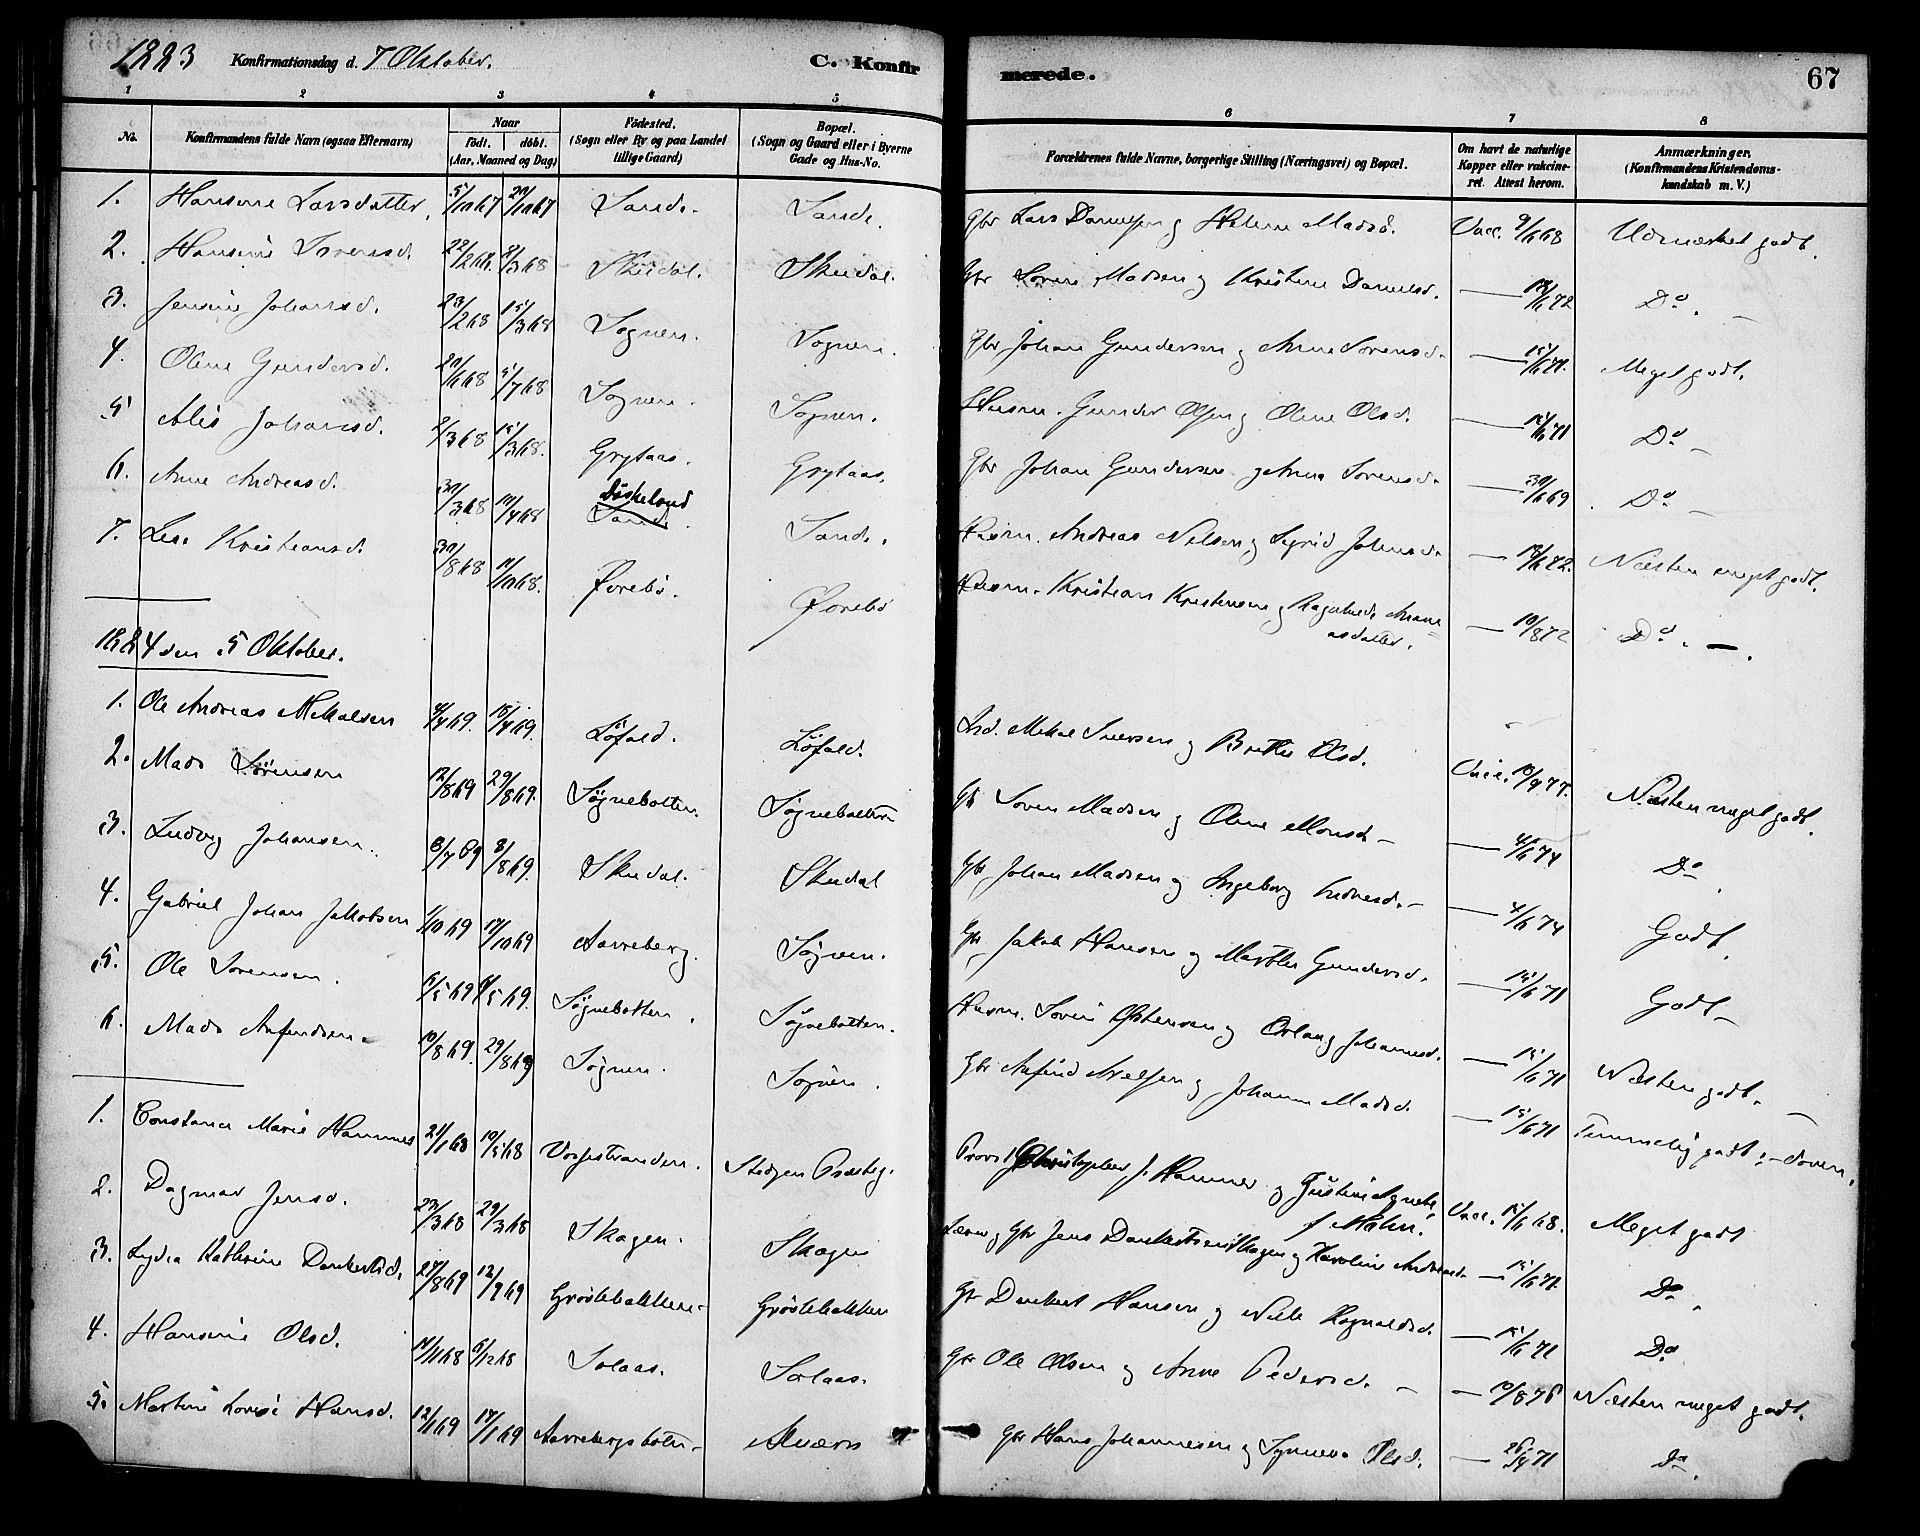 1883 Konfirmationsdag d. 7 Oktober. C. Konfirmerede. 67
1 2 3 4 5 6 7 8
No. Konfirmandens fulde Navn (ogsaa Efternavn) Naar født. døbt. (Aar, Maaned og Dag) Fødested. (Sogn eller By og paa Landet tillige Gaard) Bopæl. (Sogn og Gaard eller i Byerne Gade og Hus-No. Forældrenes fulde Navne, borgerlige Stilling (Næringsvei) og Bopæl. Om havt de naturlige Kopper eller vakcineret. Attest herom. Anmærkninger. (Konfirmandens Kristendomskundskab m. V.)
1. Hansine Larsdatter, 5/10 67 20/10 67 Sande. Sande. Gbr Lars Danielsen og Helene Madsd. Vacc. 9/6 68 Udmærket godt.
2. Hansine Sørensd. 22/2 68. 8/3 68 Skeidal. Skeidal. Gbr Søren Madsen og Kristine Danielsd. — 18/6 72 Do. —
3. Jensine Johansd. 23/2 68 15/3 68 Sognen. Sognen. Gbr Johan Gundersen og Anne Sørensd. — 15/6 71. Meget godt.
4. Oline Gundersd. 20/6 68 5/7 68 Sognen. Sognen. Husm. Gunder Olsen og Oline Olsd. — 14/6 71 Do —
5 Alis Johansd. 2/3 68 15/3 68. Grytaas. Grytaas. Gbr Johan Gundersen og Anna Sørensd. — 30/6 69 Do —
6. Anne Andreasd. 30/3 68 10/4 68 Døskeland Sande. Sande. Husm. Andreas Nilsen og Sigrid Johansd. — 18/6 72. Næsten meget godt.
7. Lise Kristiansd. 30/8 68 11/10 68. Ørebø. Ørebø Husm. Kristian Kristensen og Ragnhilde Andreasdatter. — 10/8 72 Do. — .
1884 den 5 Oktober.
1. Ole Andreas Mikalsen 4/4 69. 18/4 69. Løfald. Løfald. Ind. Mikal Iversen og Brithe Olsd. Vacc. 10/9 77. Næsten meget godt.
2. Mads Sørensen 12/8 69 29/8 69. Søgnebotten. Søgnebotten Gb Søren Madsen og Oline Monsd — — 4/6 74 Do.
3. Ludvig Johansen. 8/7 69 8/8 69. Skeidal. Skeidal Gbr Johan Madsen og Ingeborg Endresd. — — 4/6 74 Godt.
4. Gabriel Johan Jakobsen 1/10 69 17/10 69 Aarreberg. Søgnen. Gbr Jakob Hansen og Marthe Gundersd. — 15/6 71 Godt —
5. Ole Sørensen. 6/5 69 /5 69. Søgnebotten. Søgnebotten. Husm. Søren Østensen og Orlaug Johannesd. — 15/6 71 Næsten godt. —
6. Mads Anfindsen. 10/8 69. 29/8 69 Søgnen. Søgnen. Gbr Anfind Nilsen og Johanne Madsd. — 15/6 71 Temmelig godt. — doven.
1. Constance Marie Hammer 21/1 68 10/5 68 Vossestranden. Stedjen Præsteg. Provst Christopher J. Hammer og Gustine Agnethe f Mohn. Vacc. 15/6 68. Meget godt
2. Dagmar Jensd. 23/3 68 29/3 68 Skagen. Skagen Lærer og Gbr Jens Dankertsen Skagen og Karoline Andreasd. — 15/6 72. Do.
3. Lydia Kathrine Dankertsd. 27/8 69 12/9 69 Grøslebakken. Grøslebakken Gbr Dankert Hansen og Nille Ragnaldsd. — 15/6 71 Do
4. Hansine Olsd. 11/11 68 6/12 68 Solaas. Solaas. Gbr Ole Olsen og Anne Pedersd. — — 10/8 75 Næsten meget godt.
5. Martine Lovise Hansd. 12/1 69 17/1 69 Aarrebergsbotn. Gbr Hans Johannesen og Synneva Olsd. — 26/4 71 do.